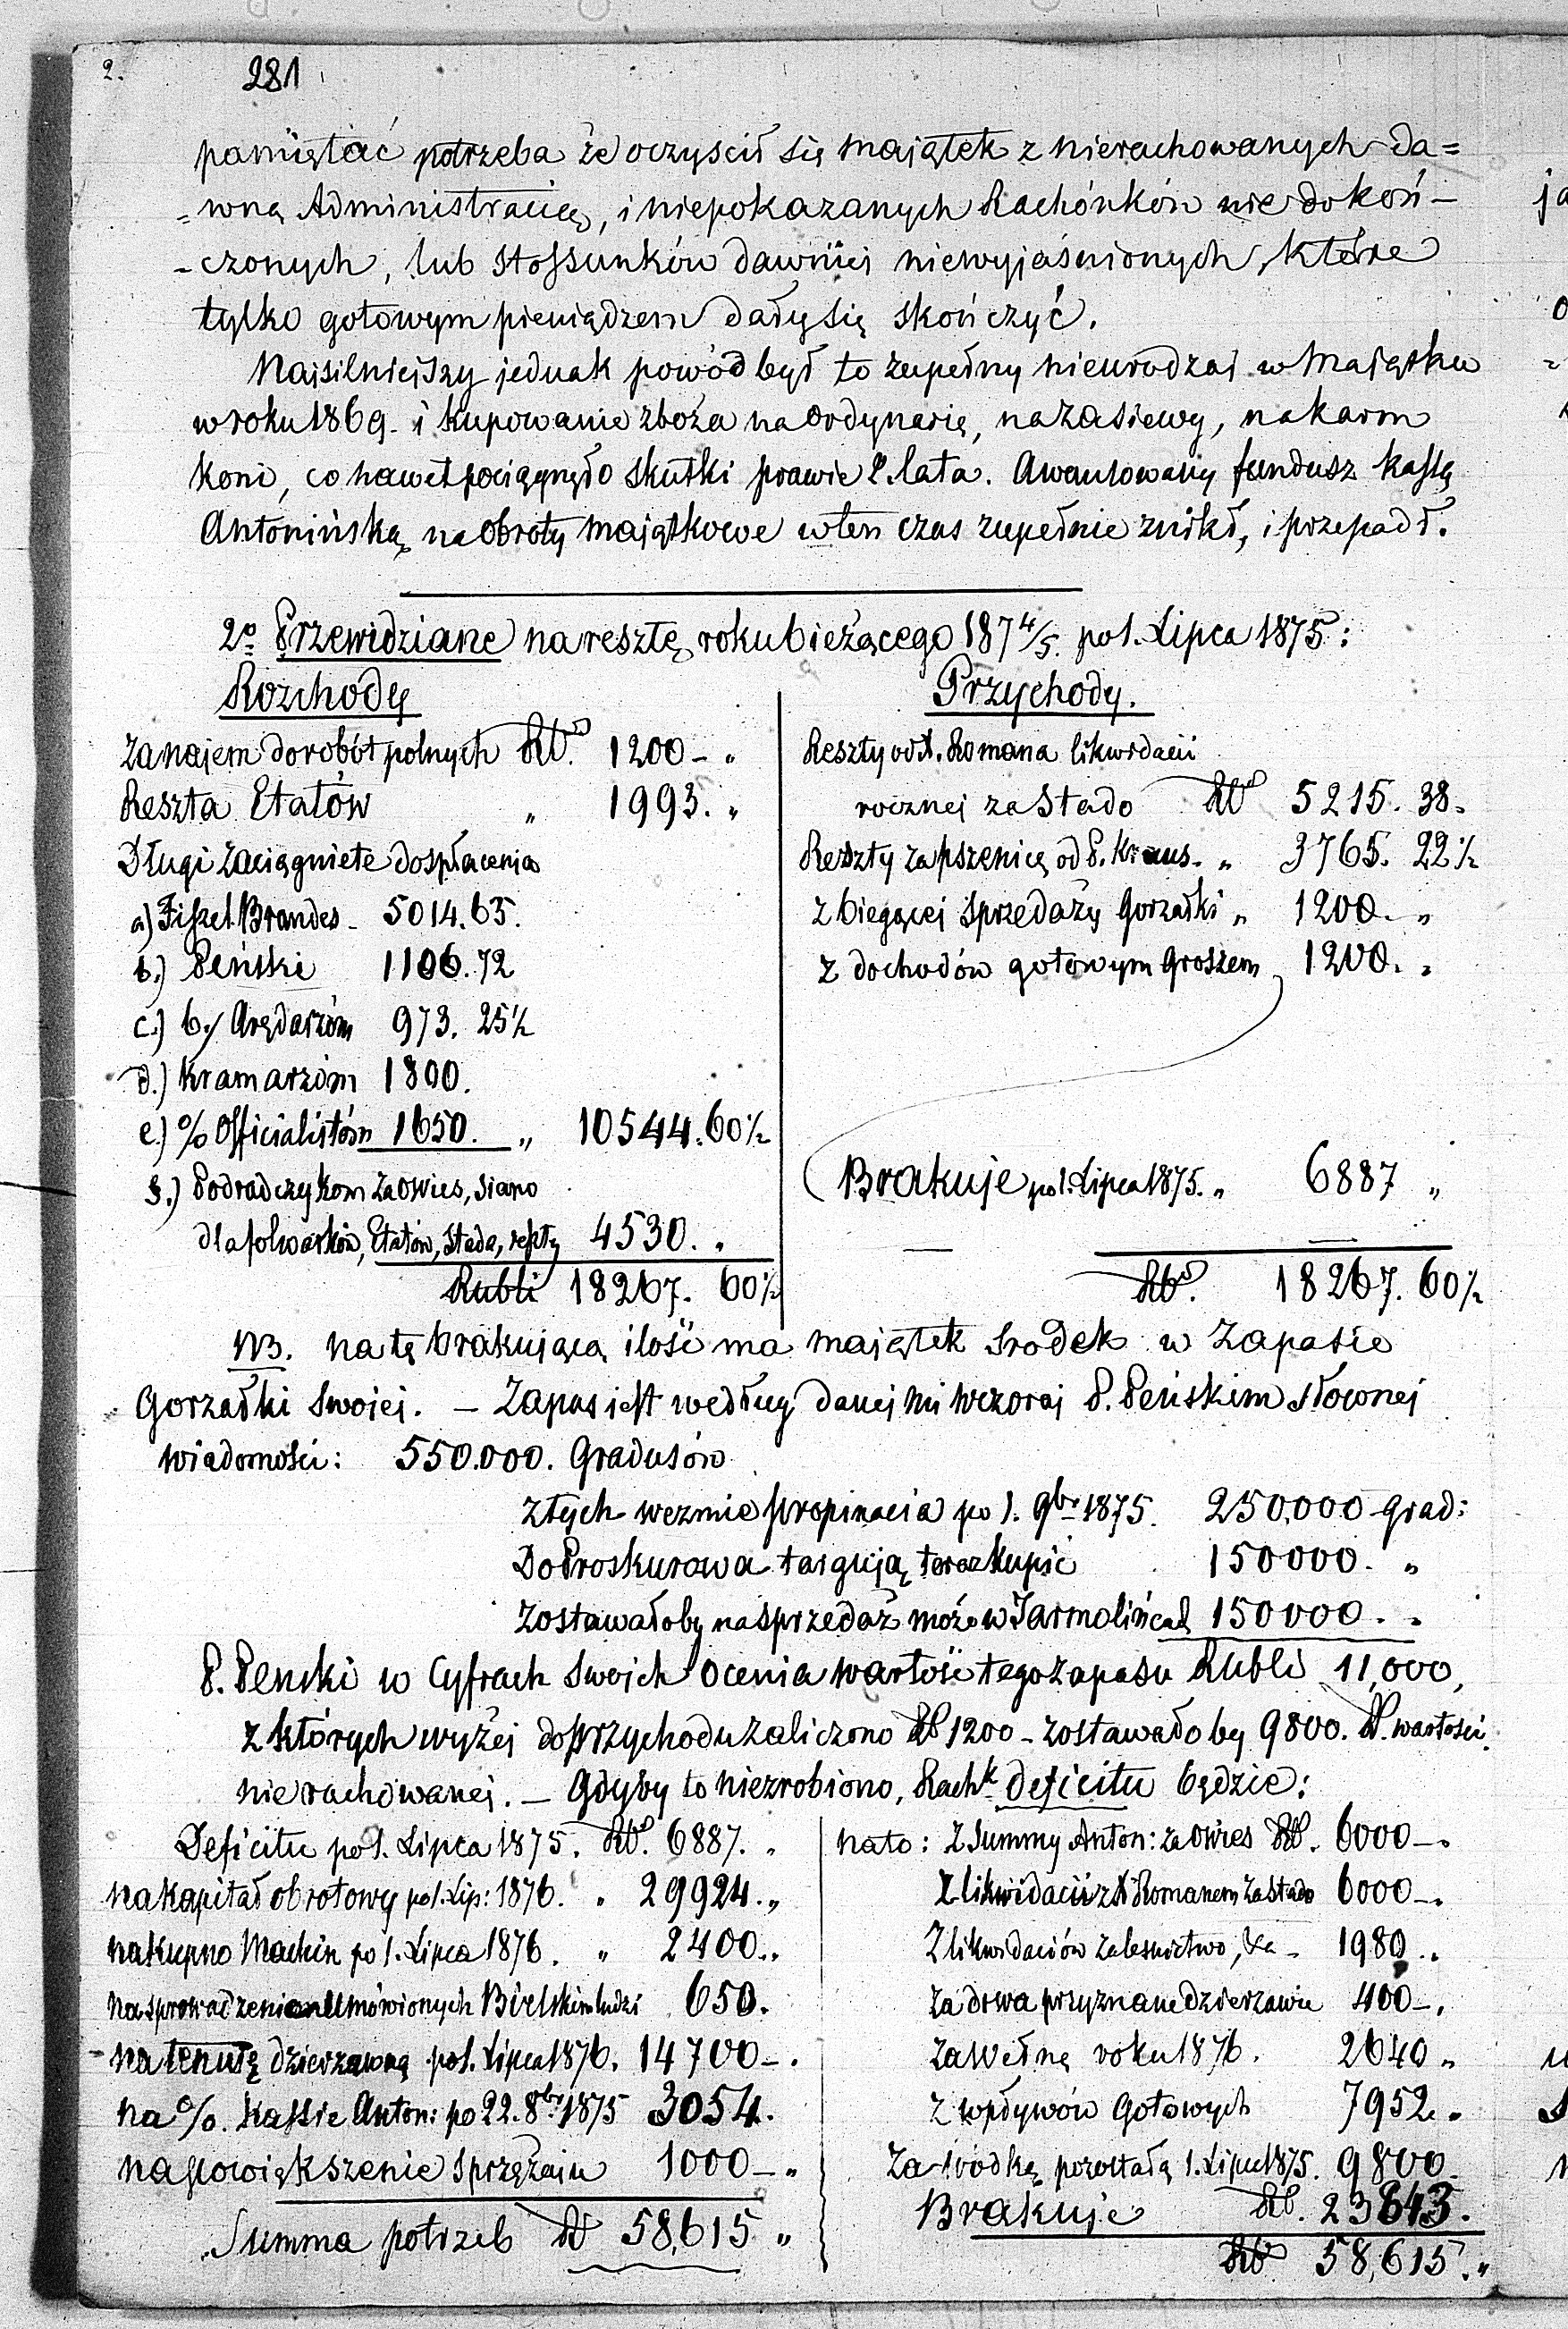 2.
281
pamiętać potrzeba że oczyścił się majątek z nierachowanych da=
=wną Administracią, i niepokazanych Rachónków nie dokoń-
-czonych, lub stossunków dawniéj niewyjaśnionych, które
tylko gotowym pieniądzem dały się skończyć.
Najsilniejszy jednak powód był to zupełny nieurodzaj w Majątku
w roku 1869. i kupowanie zboża na Ordynarię, na zasiewy, na karm
koni, co nawet pociągnęło skutki prawie 2. lata. Awansowany fundusz kassą
Antonińską na obroty majątkowe w ten czas zupełnie znikł, i przepadł.
2º Przewidziane na resztę roku bieżącego 187 4/5. po 1. Lipca 1875:
Rozchody
Za najem do robót polnych Rb. 1200 - "
Reszta Etatów " 1993. "
Długi zaciągnięte do spłacenia
a) Fiszel Brandes - 5014. 63.
b.) Peński 1106. 72
c.) b. Arędarzóm 973. 25½
d.) Kramarzóm 1800.
e.) % Officialistów 1650. " 10544. 60½
f.) Podradczykom za owies, siano
dla folwarków, Etatów, Stada, reszty 4530. "
Rubli 18267. 60½
Przychody.
Reszty od X. Romana likwidacii
rocznej za Stado Rb 5215. 38.
Reszty za pszenicę od P. Kraus. " 3765. 22½
z bieżącej sprzedaży Gorzałki " 1200. "
z dochodów gotowym Groszem 1200. "
Brakuje po 1. Lipca 1875. " 6887 "
Rb. 18267. 60½
NB. na tę brakującą ilość ma majątek srodek w zapasie
Gorzałki swojej. - Zapas jest według danej mi wczoraj P. Peńskim słownej
wiadomości: 550.000. Gradusów
z tych weźmie propinacia po 1. 9br 1875. 250,000 grad:
Do Proskurowa targują teraz kupić 150000. "
zostawałoby na sprzedaż może w Jarmolińcach 150000. "
P. Penski w Cyfrach swoich ocenia wartość tego zapasu Rubli 11,000,
z których wyżej do przychodu zaliczono Rb 1200 - zostawałoby 9800. Rb. wartości
nie rachowanej. - Gdyby to niezrobiono, Rachk deficitu będzie:
Deficitu po 1. Lipca 1875. Rb. 6887. "
na kapitał obrotowy po 1. Lip: 1876. " 29924. "
na kupno Machin po 1. Lipca 1876. " 2400. "
na sprowadzenie umówionych Bielskim ludzi 650.
na tenutę dzierzawną po 1. Lipca 1876. 14700 - .
na %. Kassie Anton: po 22. 8br 1875 3054.
na powiększenie sprzężaju 1000 - "
Summa potrzeb Rb 58,615 "
na to: z Summy Anton: za owies Rb. 6000 - "
z likwidacii z X Romanem za Stado 6000 - .
z likwidaciów za lesnictwo, &a - 1980. "
za drwa przyznane dzierzawie 400 - .
za wełnę roku 1876. 2640 "
z wpływów gotowych 7952. "
za wodkę pozostałą 1. Lipca 1875. 9800
Brakuje Rb. 23843.
Rb 58,615. "